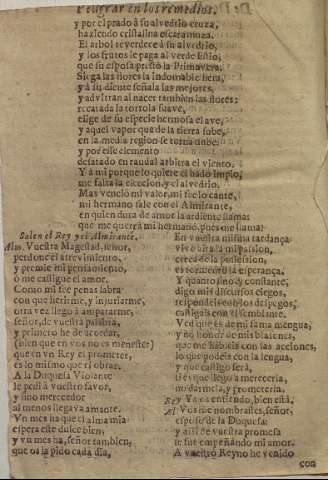 Peligrar en los remedios.
y por el prado à su alvedrio cruza,
haziendo cristalina escaramuza.
El arbol reverdece à su alvedrio,
y los frutos le paga al verde Estio,
que su esposa prestò la Primavera.
Siega las flores la indomable fiera,
y à su diente señala las mejores,
y advierten al nacer tambien las flores:
recatada la tortola suave,
elige de su especie hermosa el ave,
y aquel vapor que de la tierra sube,
en la media region se torna nube:
y por esse elemento
desatado en raudal arbitra el viento.
Y à mi porque lo quiere el hado impio,
me falta la eleccion, y el alvedrio.
Mas venció mi valor, mi
mi hermano sale con el Almirante,
en quien dura de amor la ardiente llama:
que me querrà mi hermano, pues me llama?
Salen el Rey y el Almirante.
Alm. Vuestra Magestad, señor,
perdone el atrevimiento,
y premie mi pensamiento,
ò me castigue el amor.
Como mi fee penas labra
con que herirme, y injuriarme,
otra vez llego à ampararme,
señor, de vuestra palabra,
y primero he de acordar,
(bien que en vos no es menester)
que en vn Rey el prometer,
es lo mismo que el obrar.
A la Duquesa Violante
le pedi à vuestro favor,
y sino merecedor
al menos llegava amante.
Vn mes ha que el alma mia
espera este dulce bien,
y vn mes ha, señor tambien,
que os la pido cada dia,
En vuestra misma tardança
vive ò birla mi passion,
cerca de la possession,
es tormento la esperança.
Y quanto fino, y constante,
digo mis discursos ciegos,
respondeis con los despegos,
castigais con el semblante.
Ved que es de mi fama mengua,
y no honor de mis blasones,
que me hableis con las acciones,
lo que podeis con la lengua,
y que castigo serà,
si es que llego à merecerla,
no darmela, y prometerla.
Rey Ya os entiendo, bien està.
Al. Vos me nombrasteis, señor,
esposo de la Duquesa:
y assi de vuestra promesa
se fue empeñando mi amor.
A vuestro Reyno he venido
con